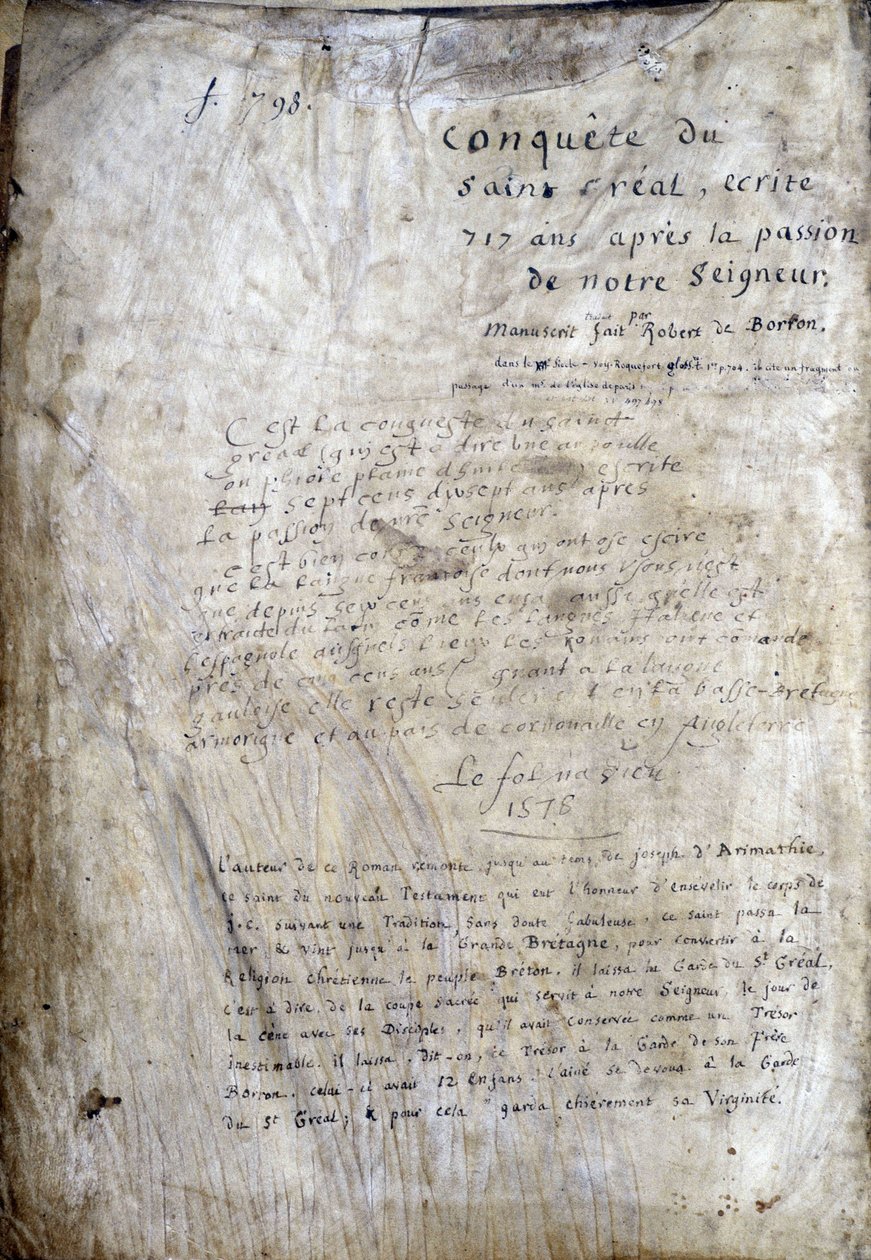 f. 798.
Conquête du
Saint Gréal, ecrite
717 ans après la passion
de notre Seigneur.
traduit par
Manuscrit fait Robert de Borron.
dans le Siecle - voy. Roquefort gloss. t. 1er p. 704. il cite un fragment ou
passage d'un ms. de l'église de paris
C'est La conqueste du sainct
greaal (qui est a dire une ampoulle
ou phiole plaine d'huile escrite
Lan sept cens dixsept ans apres
La passion de nre Seigneur.
C'est bien contre ceulx qui ont ose escire
que La langue francoise dont nous usons n'est
que depuis sept cens ans ença aussi qu'elle est
extraicte du Latin come Les Langues Italiene et
l'espagnole ausquels lieux Les Romains ont comande
pres de cinq cens ans quant a La langue
gauloise elle reste seulement en La basse-Bretagne
armorique et au pais de cornouaille en Angleterre
Le fol n'a Dieu
1578
L'auteur de ce Roman remonte jusqu'au tems de joseph d'Arimathie,
ce saint du nouveau Testament qui eut l'honneur d'ensevelir le corps de
J.C. suivant une Tradition, sans doute fabuleuse, ce saint passa la
mer, & vint jusqu'à la Grande Brétagne, pour convertir à la
Religion chrétienne le peuple Bréton. il laissa la Garde du St Gréal,
c'est à dire, de la coupe sacrée qui servit à notre Seigneur le jour de
la cène avec ses Disciples, qu'il avait conservée comme un Trésor
inestimable. il laissa, Dit-on, ce Trésor à la Garde de son Frère
Borron. celui-ci avait 12 enfans. l'ainé se devoua à la Garde
du St Gréal; & pour cela garda chièrement sa Virginité.